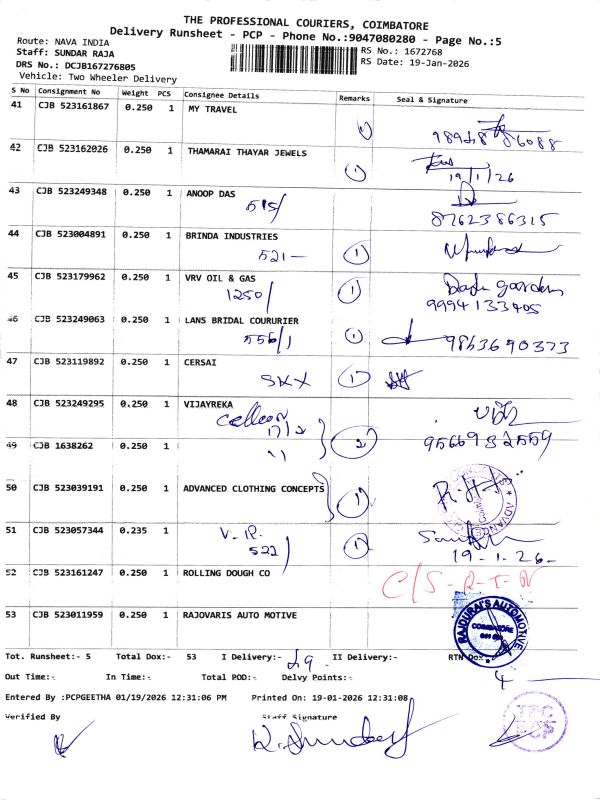 THE PROFESSIONAL COURIERS, COIMBATORE
Delivery Runsheet - PCP - Phone No.:9047080280 - Page No.:5
Route: NAVA INDIA
Staff: SUNDAR RAJA
RS No.: 1672768
DRS No.: DCJB167276805
RS Date: 19-Jan-2026
Vehicle: Two Wheeler Delivery
S No Consignment No Weight PCS Consignee Details Remarks Seal & Signature
41 CJB 523161867 0.250 1 MY TRAVEL
1
42 CJB 523162026 0.250 1 THAMARAI THAYAR JEWELS
1 19/1/26
43 CJB 523249348 0.250 1 ANOOP DAS
515/
8762386315
44 CJB 523004891 0.250 1 BRINDA INDUSTRIES
521- 1
45 CJB 523179962 0.250 1 VRV OIL & GAS
1250/ 1
9994133405
46 CJB 523249063 0.250 1 LANS BRIDAL COURURIER
556/1 1 9863690373
47 CJB 523119892 0.250 1 CERSAI
1
48 CJB 523249295 0.250 1 VIJAYREKA
2 9566932559
49 CJB 1638262 0.250 1
50 CJB 523039191 0.250 1 ADVANCED CLOTHING CONCEPTS
1
51 CJB 523057344 0.235 1 V.R.
522/ 1
19-1-26-
52 CJB 523161247 0.250 1 ROLLING DOUGH CO
53 CJB 523011959 0.250 1 RAJOVARIS AUTO MOTIVE
RAJDURAI'S AUTOMOTIVE
COIMBATORE
Tot. Runsheet:- 5 Total Dox:- 53 I Delivery:- 49 II Delivery:- RTN Dox:- 4
Out Time:- In Time:- Total POD:- Delvy Points:-
Entered By :PCPGEETHA 01/19/2026 12:31:06 PM Printed On: 19-01-2026 12:31:08
Verified By Staff Signature
TPC
PCP